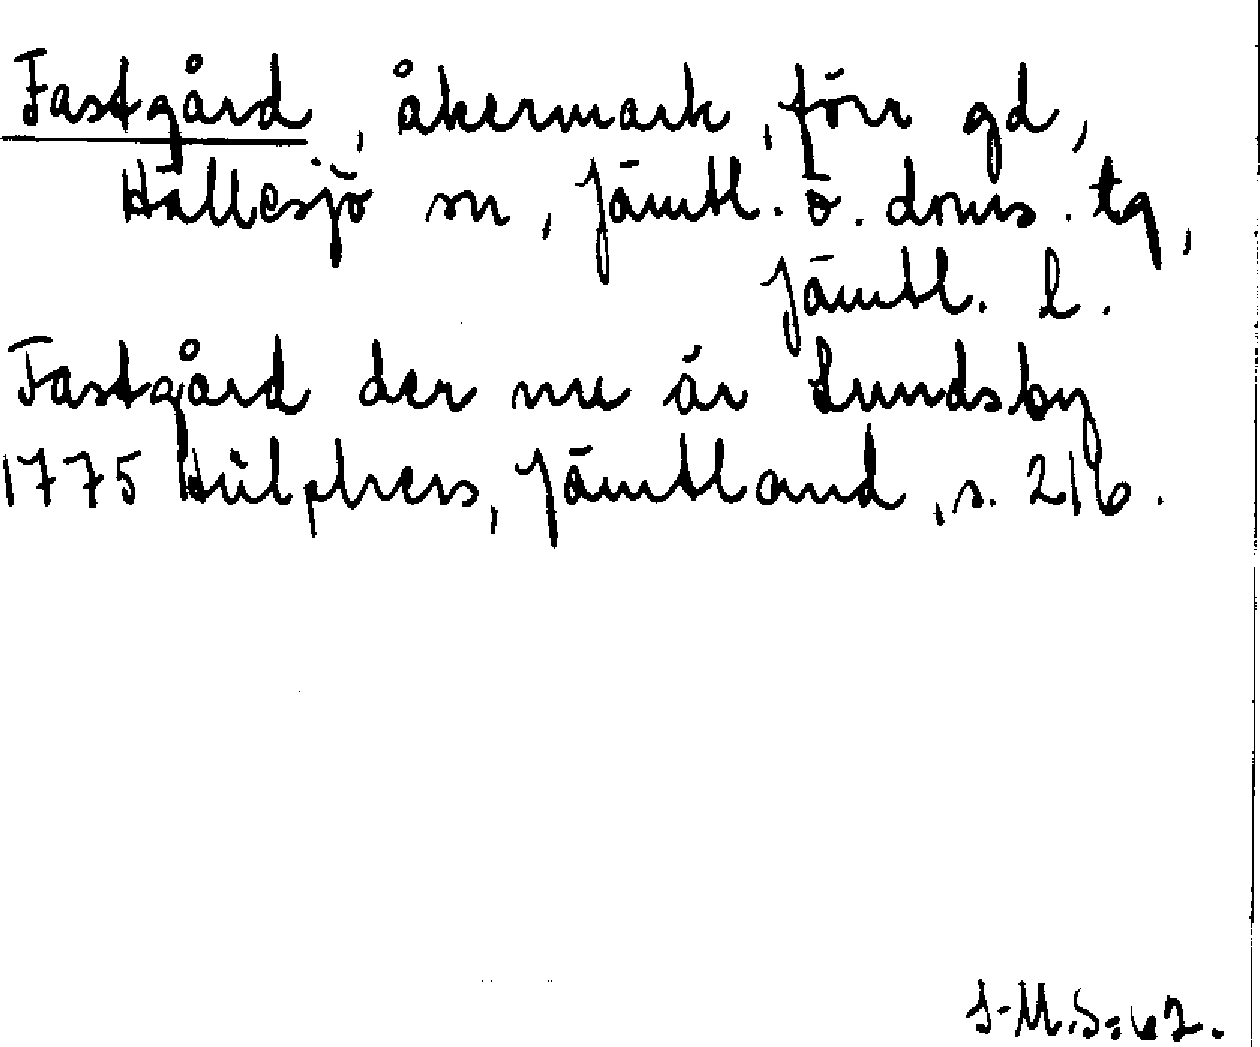 Fastgård, åkermark, förr gd,
Hällesjö sn, Jämtl. ö. doms. tg,
Jämtl. l.
Fastgård der nu är Lundsby
1775 Hülphers, Jämtland, s. 216.
I-M.S:62.